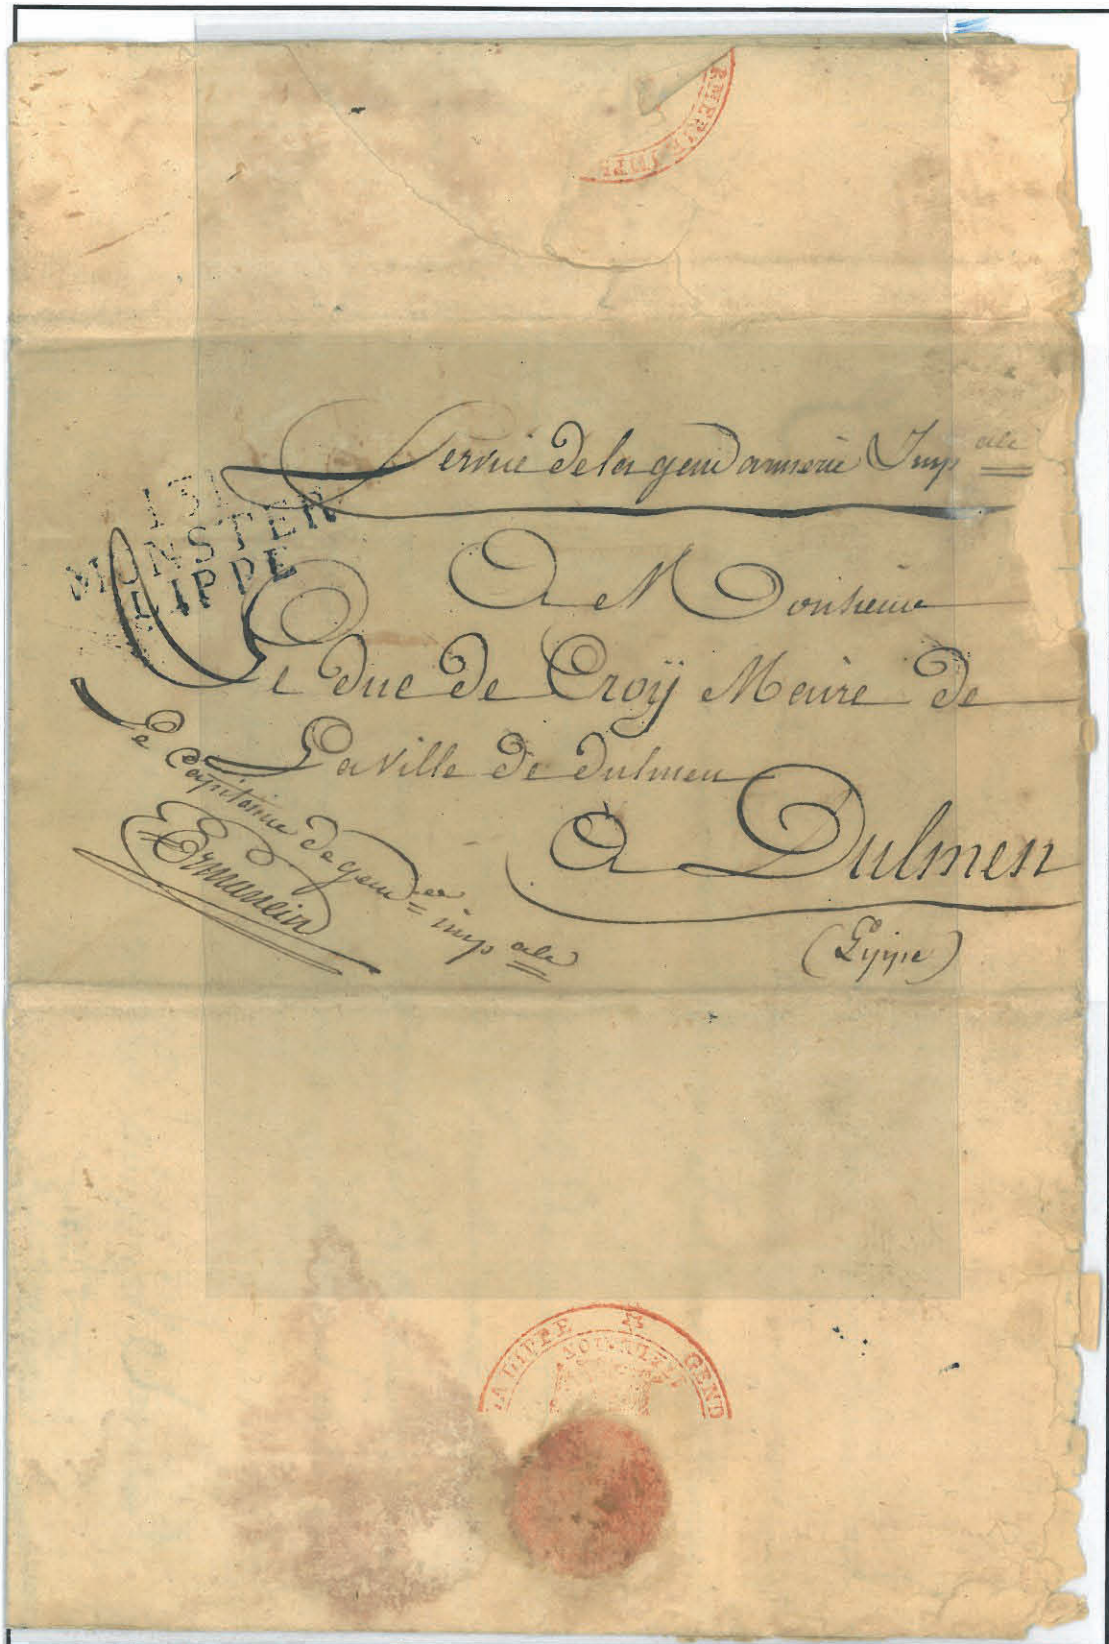 RMERIE IMPE
Service de la gendarmerie Imp ale
131
MUNSTER
LIPPE
A Monsieur
Le duc de Croÿ Maire de
La ville de dulmen
A Dulmen
(Lippe)
Le Capitaine de gend ie imp ale
LA LIPPE ☆ GEND